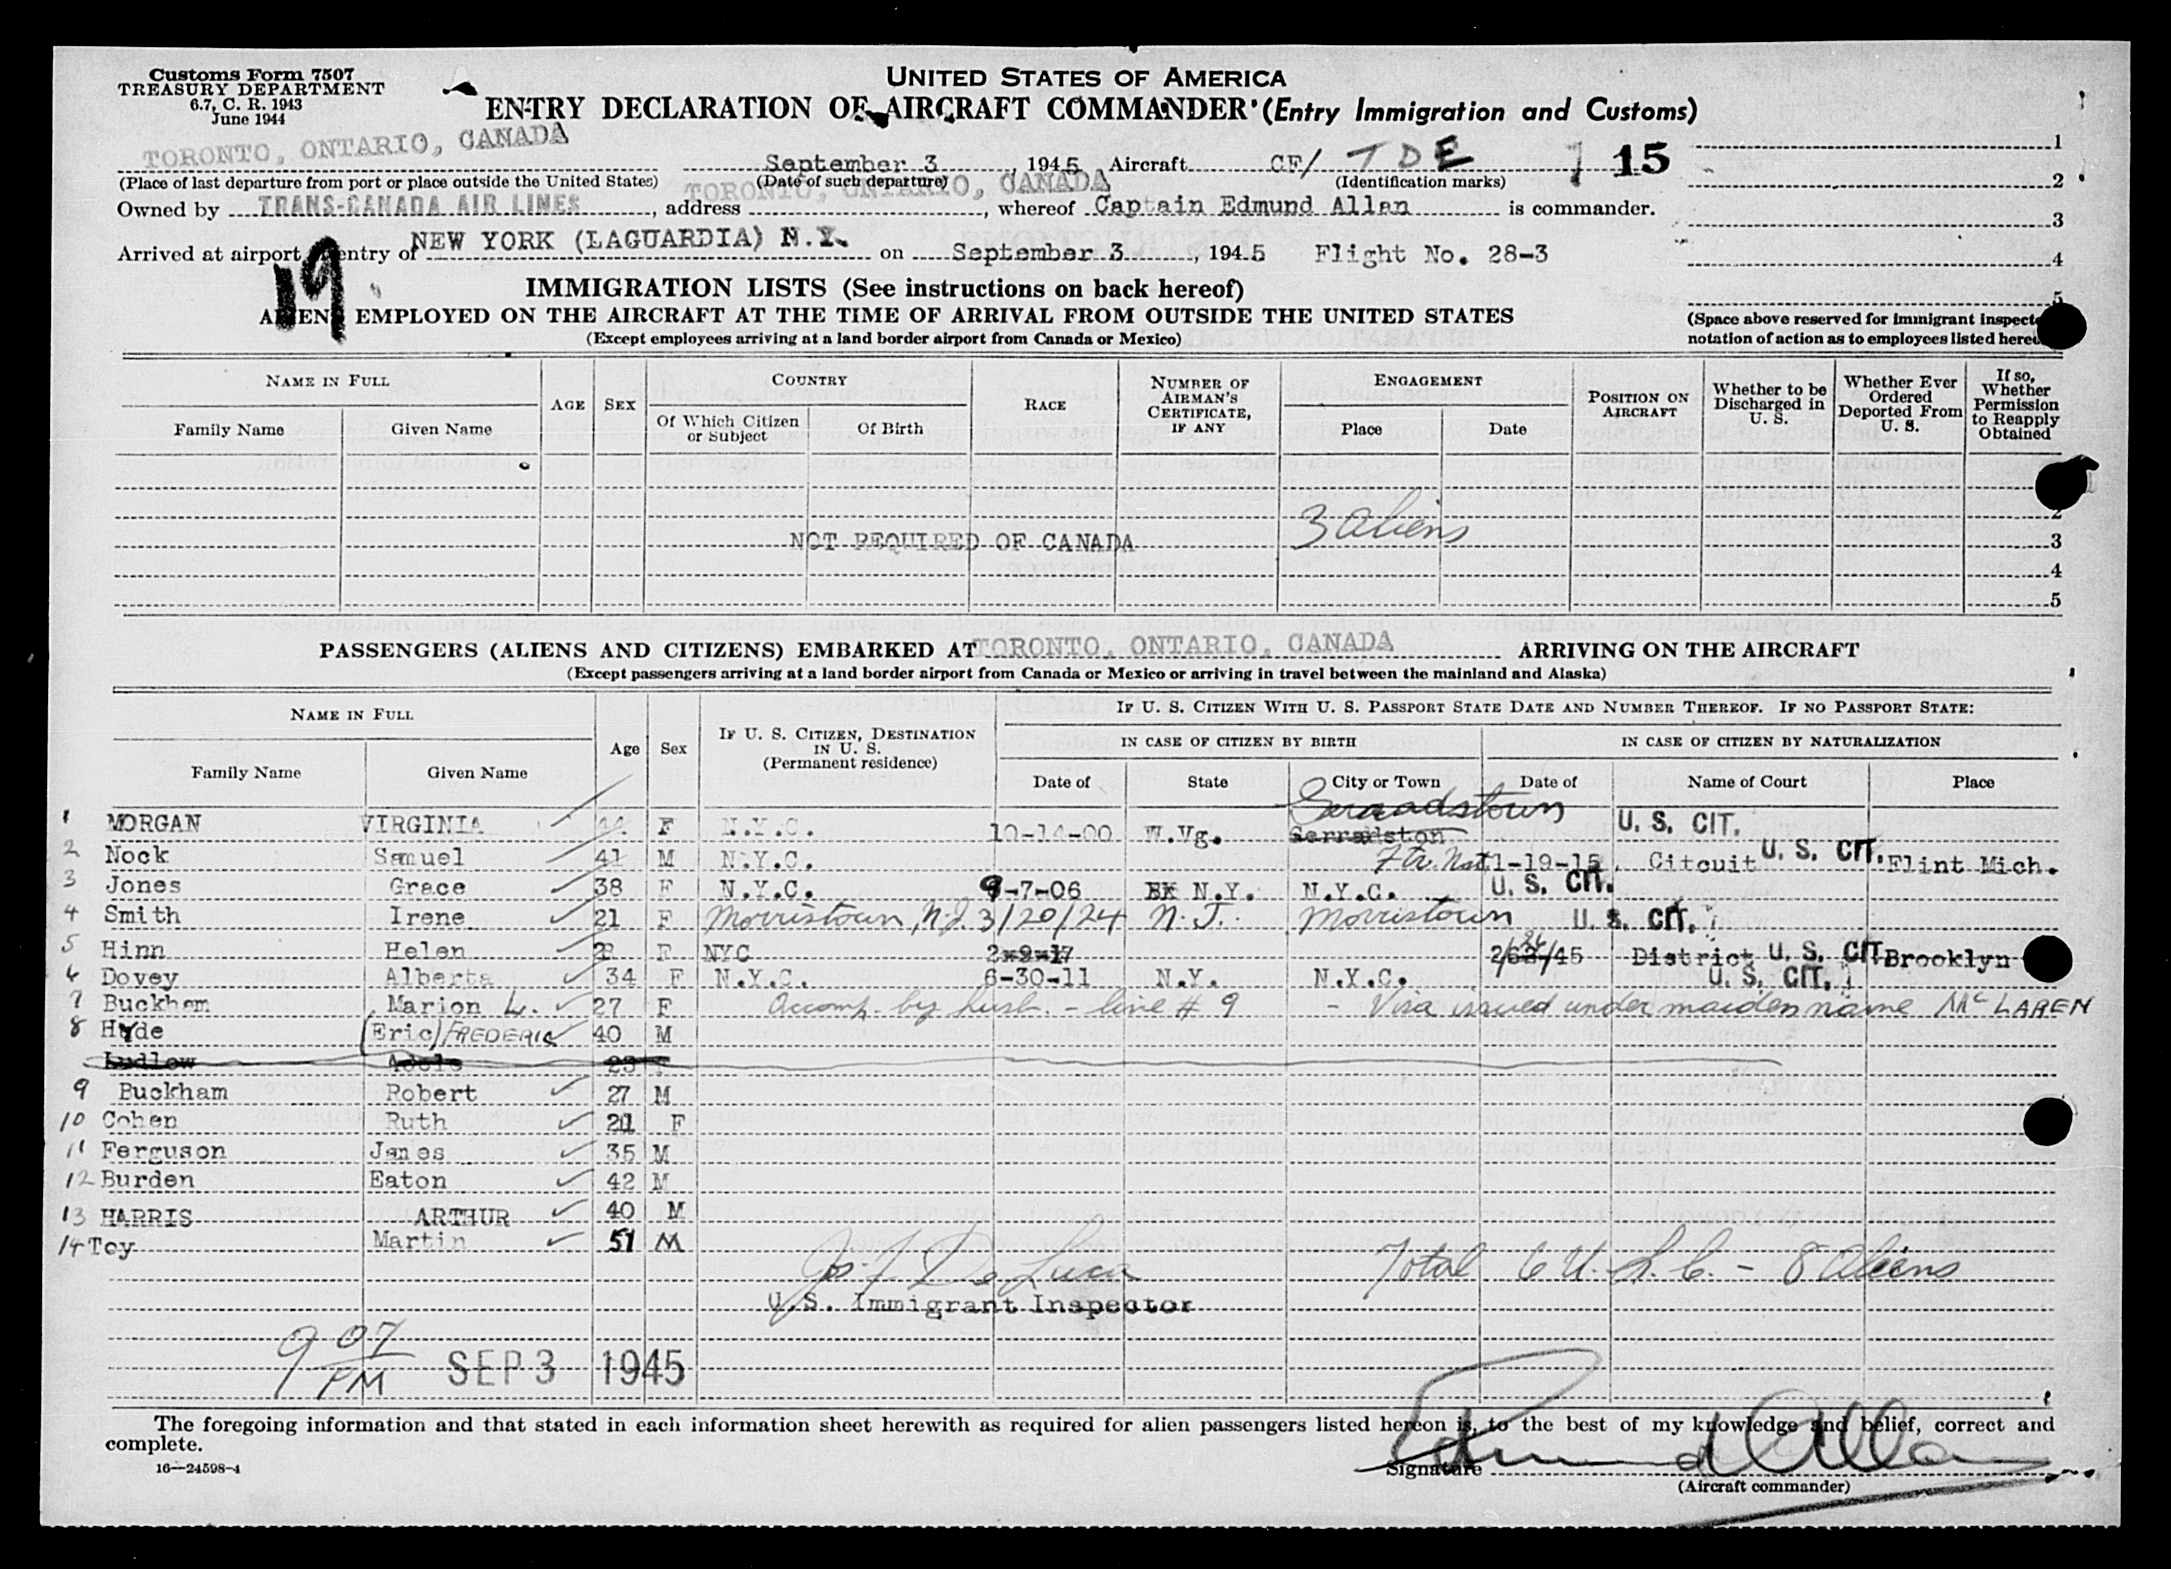 Customs Form 7507
TREASURY DEPARTMENT
6.7, C. R. 1943
June 1944
UNITED STATES OF AMERICA
ENTRY DECLARATION OF AIRCRAFT COMMANDER (Entry Immigration and Customs)
TORONTO, ONTARIO, CANADA September 3, 1945 Aircraft CF/ TDE 15 1
(Place of last departure from port or place outside the United States) (Date of such departure) (Identification marks) 2
Owned by TRANS-CANADA AIR LINES, address TORONTO, ONTARIO, CANADA, whereof Captain Edmund Allan is commander. 3
Arrived at airport of entry of NEW YORK (LAGUARDIA) N.Y. on September 3, 1945 Flight No. 28-3 4
19
5
IMMIGRATION LISTS (See instructions on back hereof)
ALIENS EMPLOYED ON THE AIRCRAFT AT THE TIME OF ARRIVAL FROM OUTSIDE THE UNITED STATES
(Space above reserved for immigrant inspector
(Except employees arriving at a land border airport from Canada or Mexico)
notation of action as to employees listed hereon
NAME IN FULL AGE SEX COUNTRY RACE NUMBER OF AIRMAN'S CERTIFICATE, IF ANY ENGAGEMENT POSITION ON AIRCRAFT Whether to be Discharged in U. S. Whether Ever Ordered Deported From U. S. If so, Whether Permission to Reapply Obtained
Family Name Given Name Of Which Citizen or Subject Of Birth Place Date
2
NOT REQUIRED OF CANADA 3 aliens 3
4
5
PASSENGERS (ALIENS AND CITIZENS) EMBARKED AT TORONTO, ONTARIO, CANADA ARRIVING ON THE AIRCRAFT
(Except passengers arriving at a land border airport from Canada or Mexico or arriving in travel between the mainland and Alaska)
NAME IN FULL Age Sex IF U. S. CITIZEN, DESTINATION IN U. S. (Permanent residence) IF U. S. CITIZEN WITH U. S. PASSPORT STATE DATE AND NUMBER THEREOF. IF NO PASSPORT STATE:
IN CASE OF CITIZEN BY BIRTH IN CASE OF CITIZEN BY NATURALIZATION
Family Name Given Name Date of State City or Town Date of Name of Court Place
Gerradstown
1 MORGAN VIRGINIA 44 F N.Y.C. 10-14-00 W.Vg. Gerradston U. S. CIT.
2 Nock Samuel 41 M N.Y.C. 11-19-15 Citcuit U. S. CIT. Flint Mich.
3 Jones Grace 38 F N.Y.C. 9-7-06 N.Y. N.Y.C. U. S. CIT.
4 Smith Irene 21 F Morristown, N.J. 3/20/24 N. J. Morristown U. S. CIT.
5 Hinn Helen F NYC 2-9-17 District U. S. CIT. Brooklyn
6 Dovey Alberta 34 F N.Y.C. 6-30-11 N.Y. N.Y.C. U. S. CIT.
7 Buckham Marion L. 27 F Accomp. by husb. - line # 9 - Visa issued under maiden name McLAREN
8 Hyde (Eric) FREDERIC 40 M
Ludlow Adele 23 F
9 Buckham Robert 27 M
10 Cohen Ruth 21 F
11 Ferguson James 35 M
12 Burden Eaton 42 M
13 HARRIS ARTHUR 40 M
14 Toy Martin 51 M
Jos. J. De Luca Total 6 U.S.C. - 8 Aliens
U.S. Immigrant Inspector
9 07 PM SEP 3 1945
The foregoing information and that stated in each information sheet herewith as required for alien passengers listed hereon is, to the best of my knowledge and belief, correct and
complete.
16—24598-4
Signature Edmund Allan
(Aircraft commander)